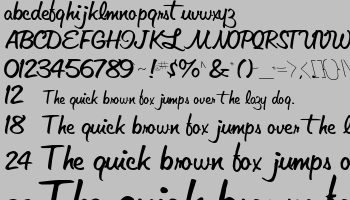 abcdefghijklmnopqrst uvwxyz
ABCDEFGHIJKL MNOPQRSTUVW
0123456789~!#$%^&*()-_+=>/<[]{}\
12 The quick brown fox jumps over the lazy dog.
18 The quick brown fox jumps over the l
24 The quick brown fox jumps o
The quick brown f